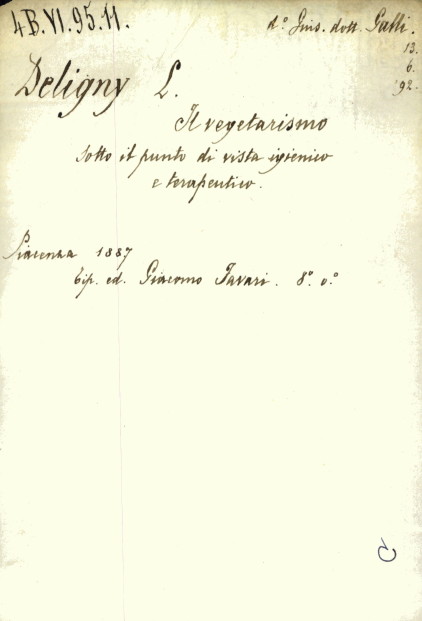 4B.VI.95.11.
d.º Gius. dott. Galli.
13.
6.
'92.
Deligny L.
Il vegetarismo
sotto il punto di vista igienico
e terapeutico.
Piacenza 1887
tip. ed. Giacomo Favari. 8.º o.º